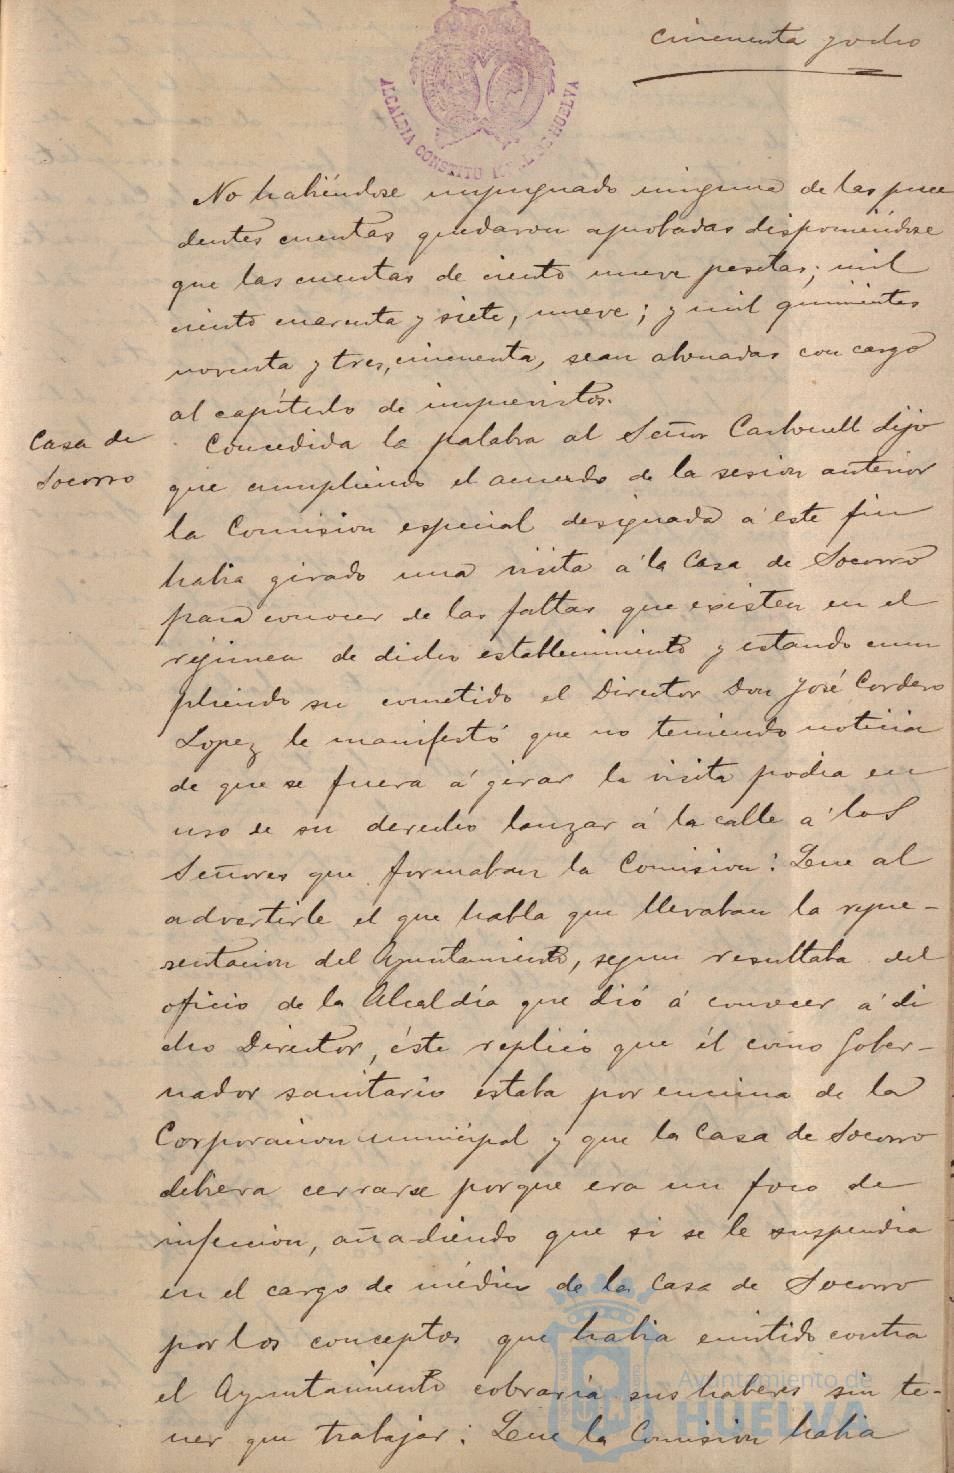 cincuenta y ocho
ALCALDIA CONSTITUCIONAL DE HUELVA
No habiéndose impugnado ninguna de las prece
dentes cuentas quedaron aprobadas disponiéndose
que las cuentas de ciento nueve pesetas; mil
ciento cuarenta y siete, nueve; y mil quinientas
noventa y tres, cincuenta, sean abonadas con cargo
al capítulo de imprevistos.
Casa de
Socorro
Concedida la palabra al Señor Carbonell dijo
que cumpliendo el acuerdo de la sesion anterior
la Comision especial designada á este fin
habia girado una visita á la Casa de Socorro
para conocer de las faltas que existen en el
régimen de dicho establecimiento y estando cum
pliendo su cometido el Director Don José Cordero
Lopez le manifestó que no teniendo noticia
de que se fuera á girar la visita podia en
uso de su derecho lanzar á la calle á los
Señores que formaban la Comision: Que al
advertirle el que habla que llevaban la repre-
sentacion del Ayuntamiento, segun resultaba del
oficio de la Alcaldía que dió á conocer á di
cho Director, éste replicó que él como Gober-
nador sanitario estaba por encima de la
Corporacion municipal y que la Casa de Socorro
debiera cerrarse porque era un foco de
infeccion, añadiendo que si se le suspendia
en el cargo de médico de la Casa de Socorro
por los conceptos que habia emitido contra
el Ayuntamiento cobraria sus haberes sin te-
ner que trabajar: Que la Comision habia
Ayuntamiento de
HUELVA